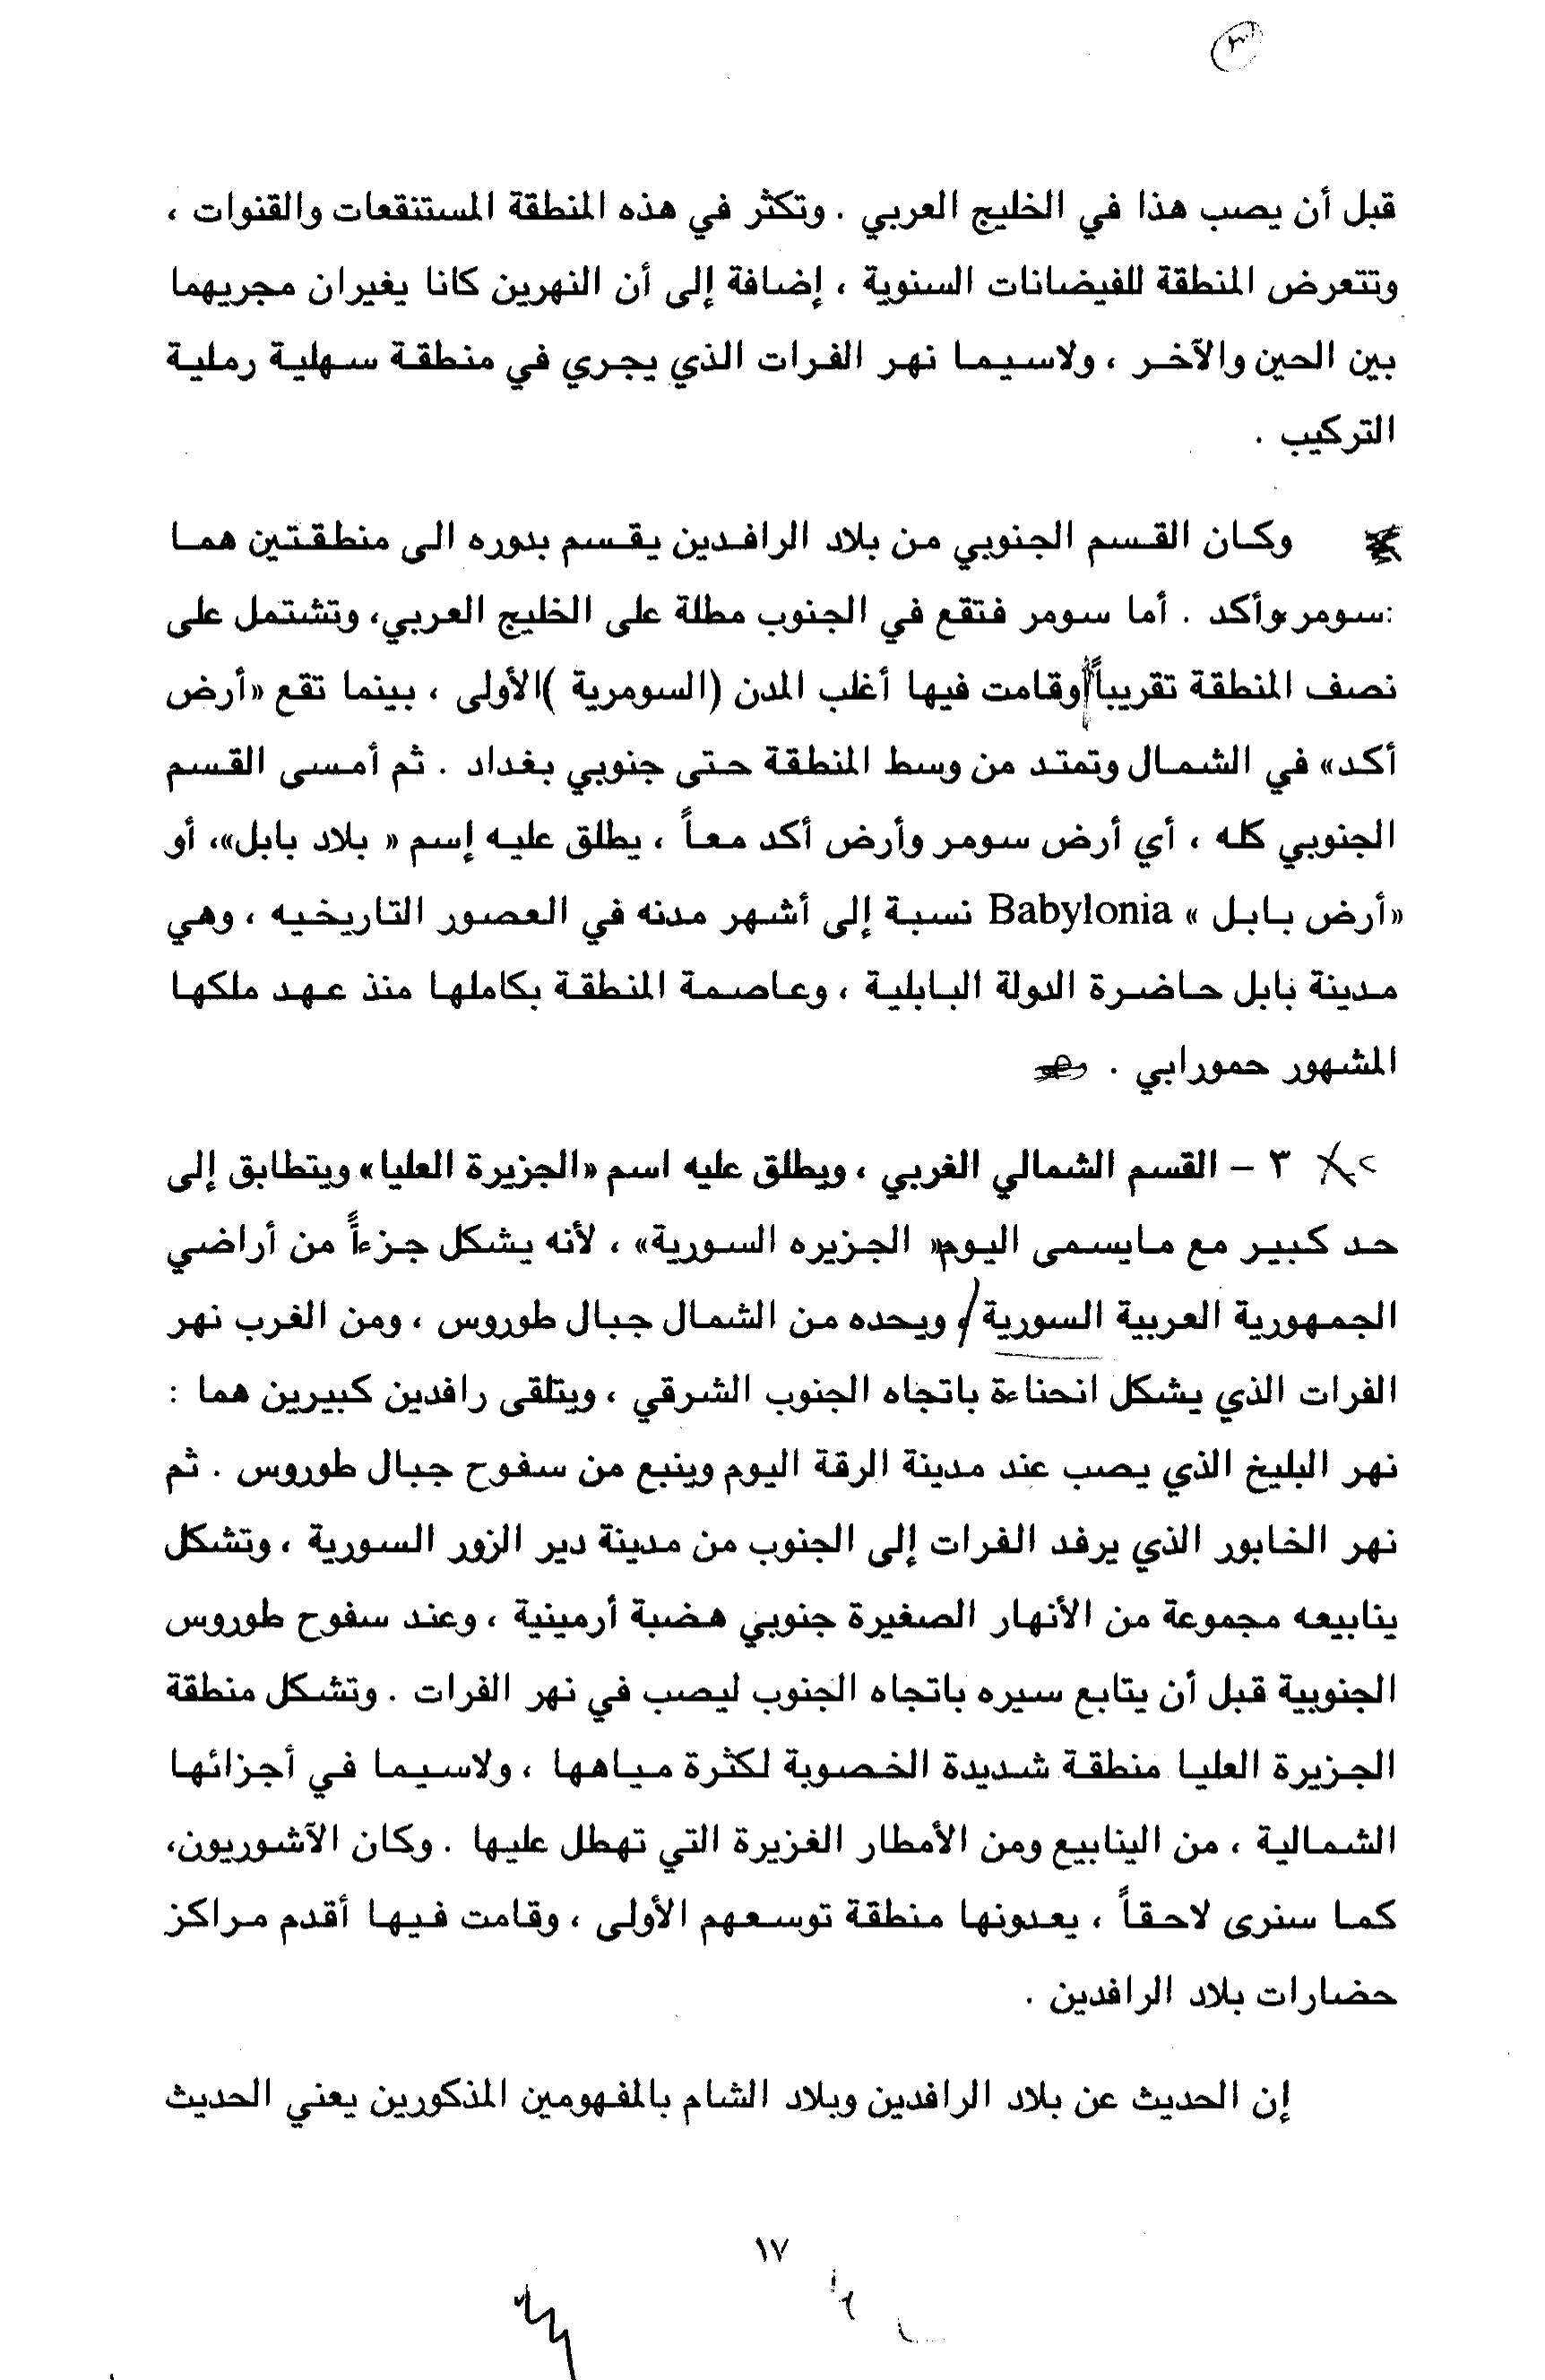 ٣
قبل أن يصب هذا في الخليج العربي . وتكثر في هذه المنطقة المستنقعات والقنوات ،
وتتعرض المنطقة للفيضانات السنوية ، إضافة إلى أن النهرين كانا يغيران مجريهما
بين الحين والآخر ، ولاسيما نهر الفرات الذي يجري في منطقة سهلية رملية
التركيب .
وكان القسم الجنوبي من بلاد الرافدين يقسم بدوره الى منطقتين هما
:سومر وأكد . أما سومر فتقع في الجنوب مطلة على الخليج العربي، وتشتمل على
نصف المنطقة تقريباً وقامت فيها أغلب المدن (السومرية )الأولى ، بينما تقع «أرض
أكد» في الشمال وتمتد من وسط المنطقة حتى جنوبي بغداد . ثم أمسى القسم
الجنوبي كله ، أي أرض سومر وأرض أكد معاً ، يطلق عليه إسم « بلاد بابل»، أو
«أرض بابل » Babylonia نسبة إلى أشهر مدنه في العصور التاريخيه ، وهي
مدينة بابل حاضرة الدولة البابلية ، وعاصمة المنطقة بكاملها منذ عهد ملكها
المشهور حمورابي .
٣ - القسم الشمالي الغربي ، ويطلق عليه اسم «الجزيرة العليا» ويتطابق إلى
حد كبير مع مايسمى اليوم« الجزيره السورية» ، لأنه يشكل جزءاً من أراضي
الجمهورية العربية السورية ، ويحده من الشمال جبال طوروس ، ومن الغرب نهر
الفرات الذي يشكل انحناءة باتجاه الجنوب الشرقي ، ويتلقى رافدين كبيرين هما :
نهر البليخ الذي يصب عند مدينة الرقة اليوم وينبع من سفوح جبال طوروس . ثم
نهر الخابور الذي يرفد الفرات إلى الجنوب من مدينة دير الزور السورية ، وتشكل
ينابيعه مجموعة من الأنهار الصغيرة جنوبي هضبة أرمينية ، وعند سفوح طوروس
الجنوبية قبل أن يتابع سيره باتجاه الجنوب ليصب في نهر الفرات . وتشكل منطقة
الجزيرة العليا منطقة شديدة الخصوبة لكثرة مياهها ، ولاسيما في أجزائها
الشمالية ، من الينابيع ومن الأمطار الغزيرة التي تهطل عليها . وكان الآشوريون،
كما سنرى لاحقاً ، يعدونها منطقة توسعهم الأولى ، وقامت فيها أقدم مراكز
حضارات بلاد الرافدين .
إن الحديث عن بلاد الرافدين وبلاد الشام بالمفهومين المذكورين يعني الحديث
١٧